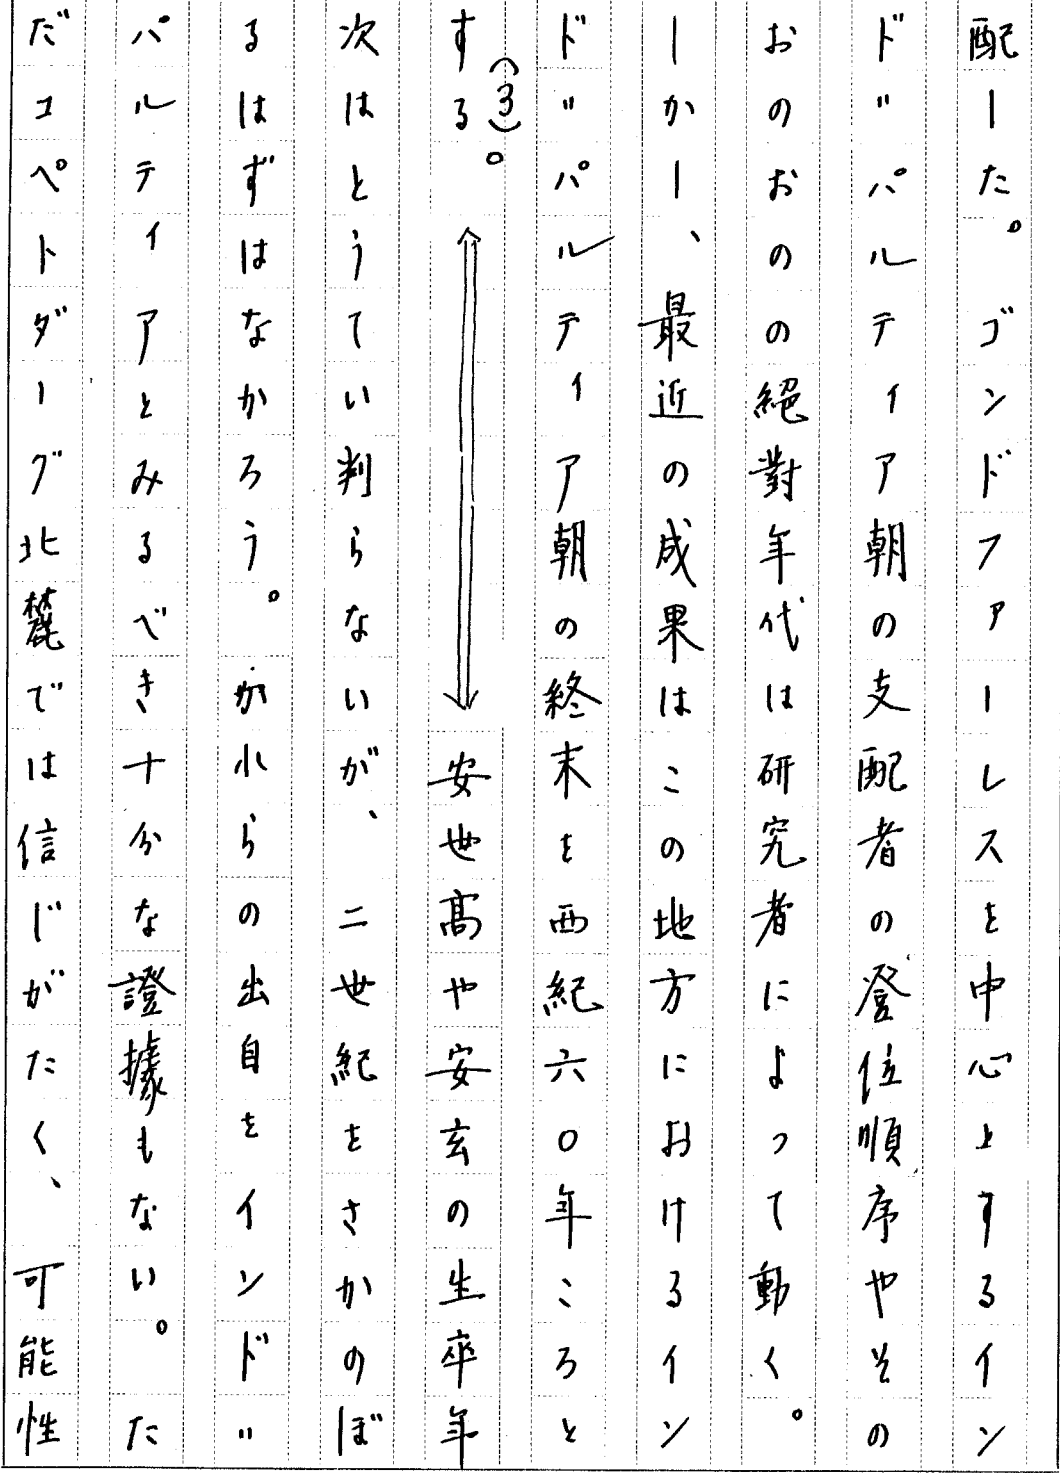 配した。ゴンドファーレスを中心とするイン
ド〃パルティア朝の支配者の登位順序やその
おのおのの絕對年代は研究者によって動く。
しかし、最近の成果はこの地方におけるイン
ド〃パルティア朝の終末を西紀六〇年ころと
する(3)。⟷安世高や安玄の生卒年
次はとうてい判らないが、二世紀をさかのぼ
るはずはなかろう。かれらの出自をインド〃
パルティアとみるべき十分な證據もない。た
だコペトダーグ北麓では信じがたく、可能性